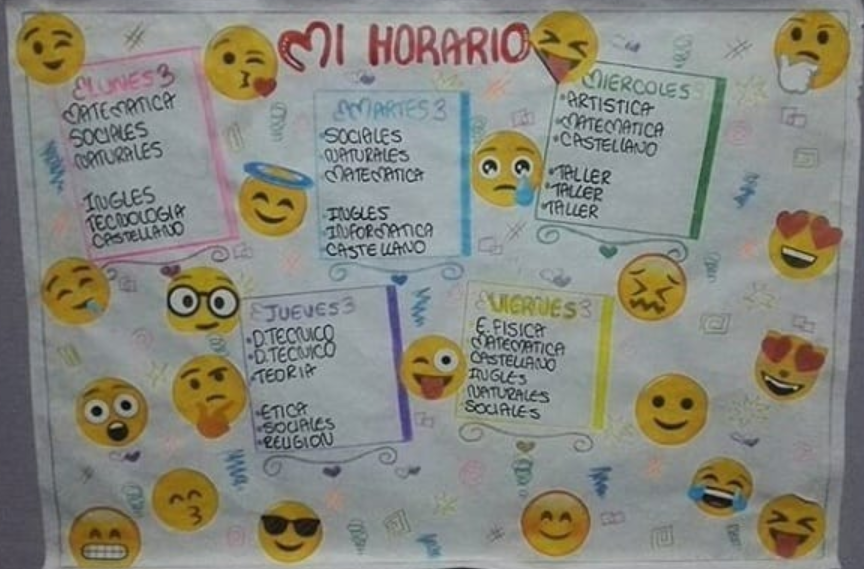 MI HORARIO
LUNES
MATEMATICA
SOCIALES
NATURALES
INGLES
TECNOLOGIA
CASTELLANO
MARTES
•SOCIALES
•NATURALES
MATEMATICA
•INGLES
•INFORMATICA
CASTELLANO
MIERCOLES
•ARTISTICA
•MATEMATICA
•CASTELLANO
•TALLER
•TALLER
•TALLER
JUEVES
•D.TECNICO
•D.TECNICO
•TEORIA
•ETICA
•SOCIALES
•RELIGION
VIERNES
E.FISICA
MATEMATICA
CASTELLANO
INGLES
NATURALES
SOCIALES